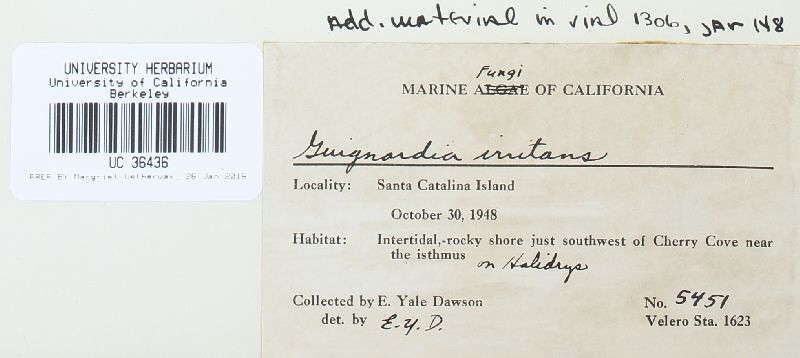 Add. material in vial 1306, jar 148
UNIVERSITY HERBARIUM
University of California
Berkeley
UC 36436
PREP BY Margriet Wetherwax, 26 Jan 2016
Fungi
MARINE ALGAE OF CALIFORNIA
Guignardia irritans
Locality: Santa Catalina Island
October 30, 1948
Habitat: Intertidal,-rocky shore just southwest of Cherry Cove near
the isthmus on Halidrys
Collected by E. Yale Dawson No. 5451
det. by E.Y.D. Velero Sta. 1623